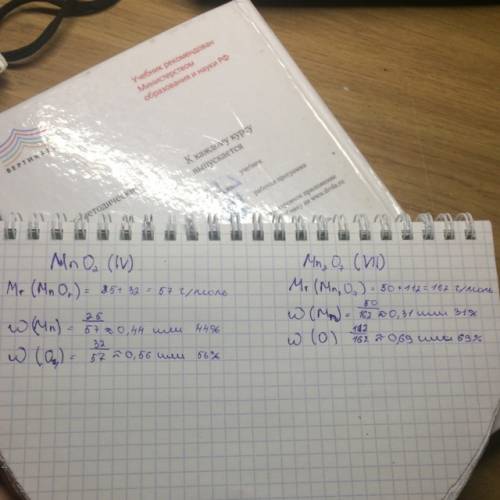 Учебник рекомендован
Министерством
образования и науки РФ
ВЕРТИКАЛЬ
К каждому курсу
выпускается
методическ
рабочая программа
Mn O₂ (IV)
Mr (MnO₂) = 25+32 = 57 г/моль
ω(Mn) = 25/57 ≈ 0,44 или 44%
ω(O₂) = 32/57 ≈ 0,56 или 56%
Mn₂ O₇ (VII)
Mr (Mn₂O₇) = 50+112 = 162 г/моль
ω(Mn) = 50/162 ≈ 0,31 или 31%
ω(O) 112/162 ≈ 0,69 или 69%